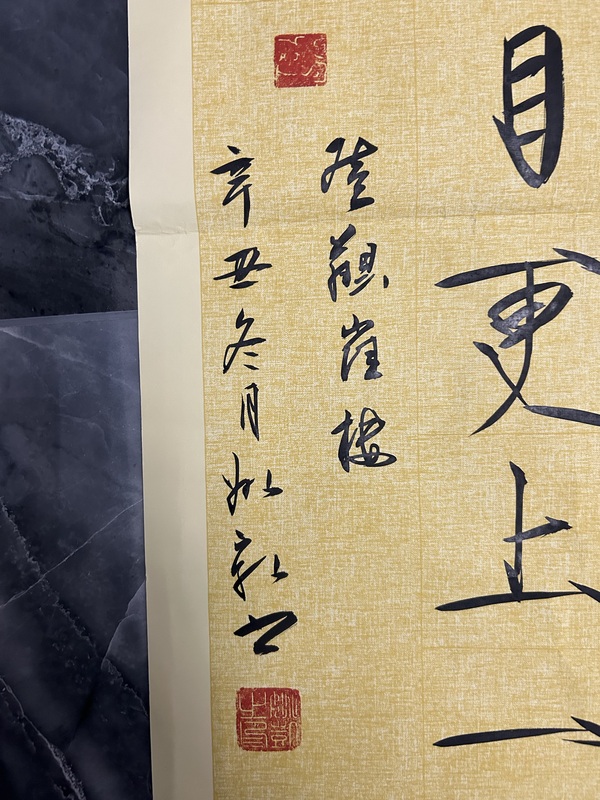 目更上一
登鸛雀樓
辛丑冬月姚书